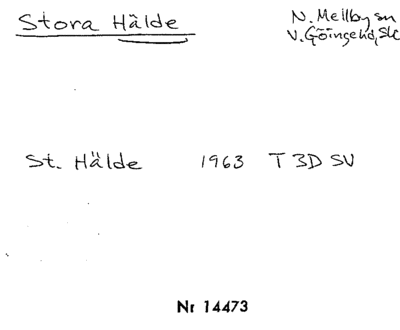 Stora Hälde
N. Mellby sn
V. Göingehd, Skå
St. Hälde 1963 T 3D SV
Nr 14473